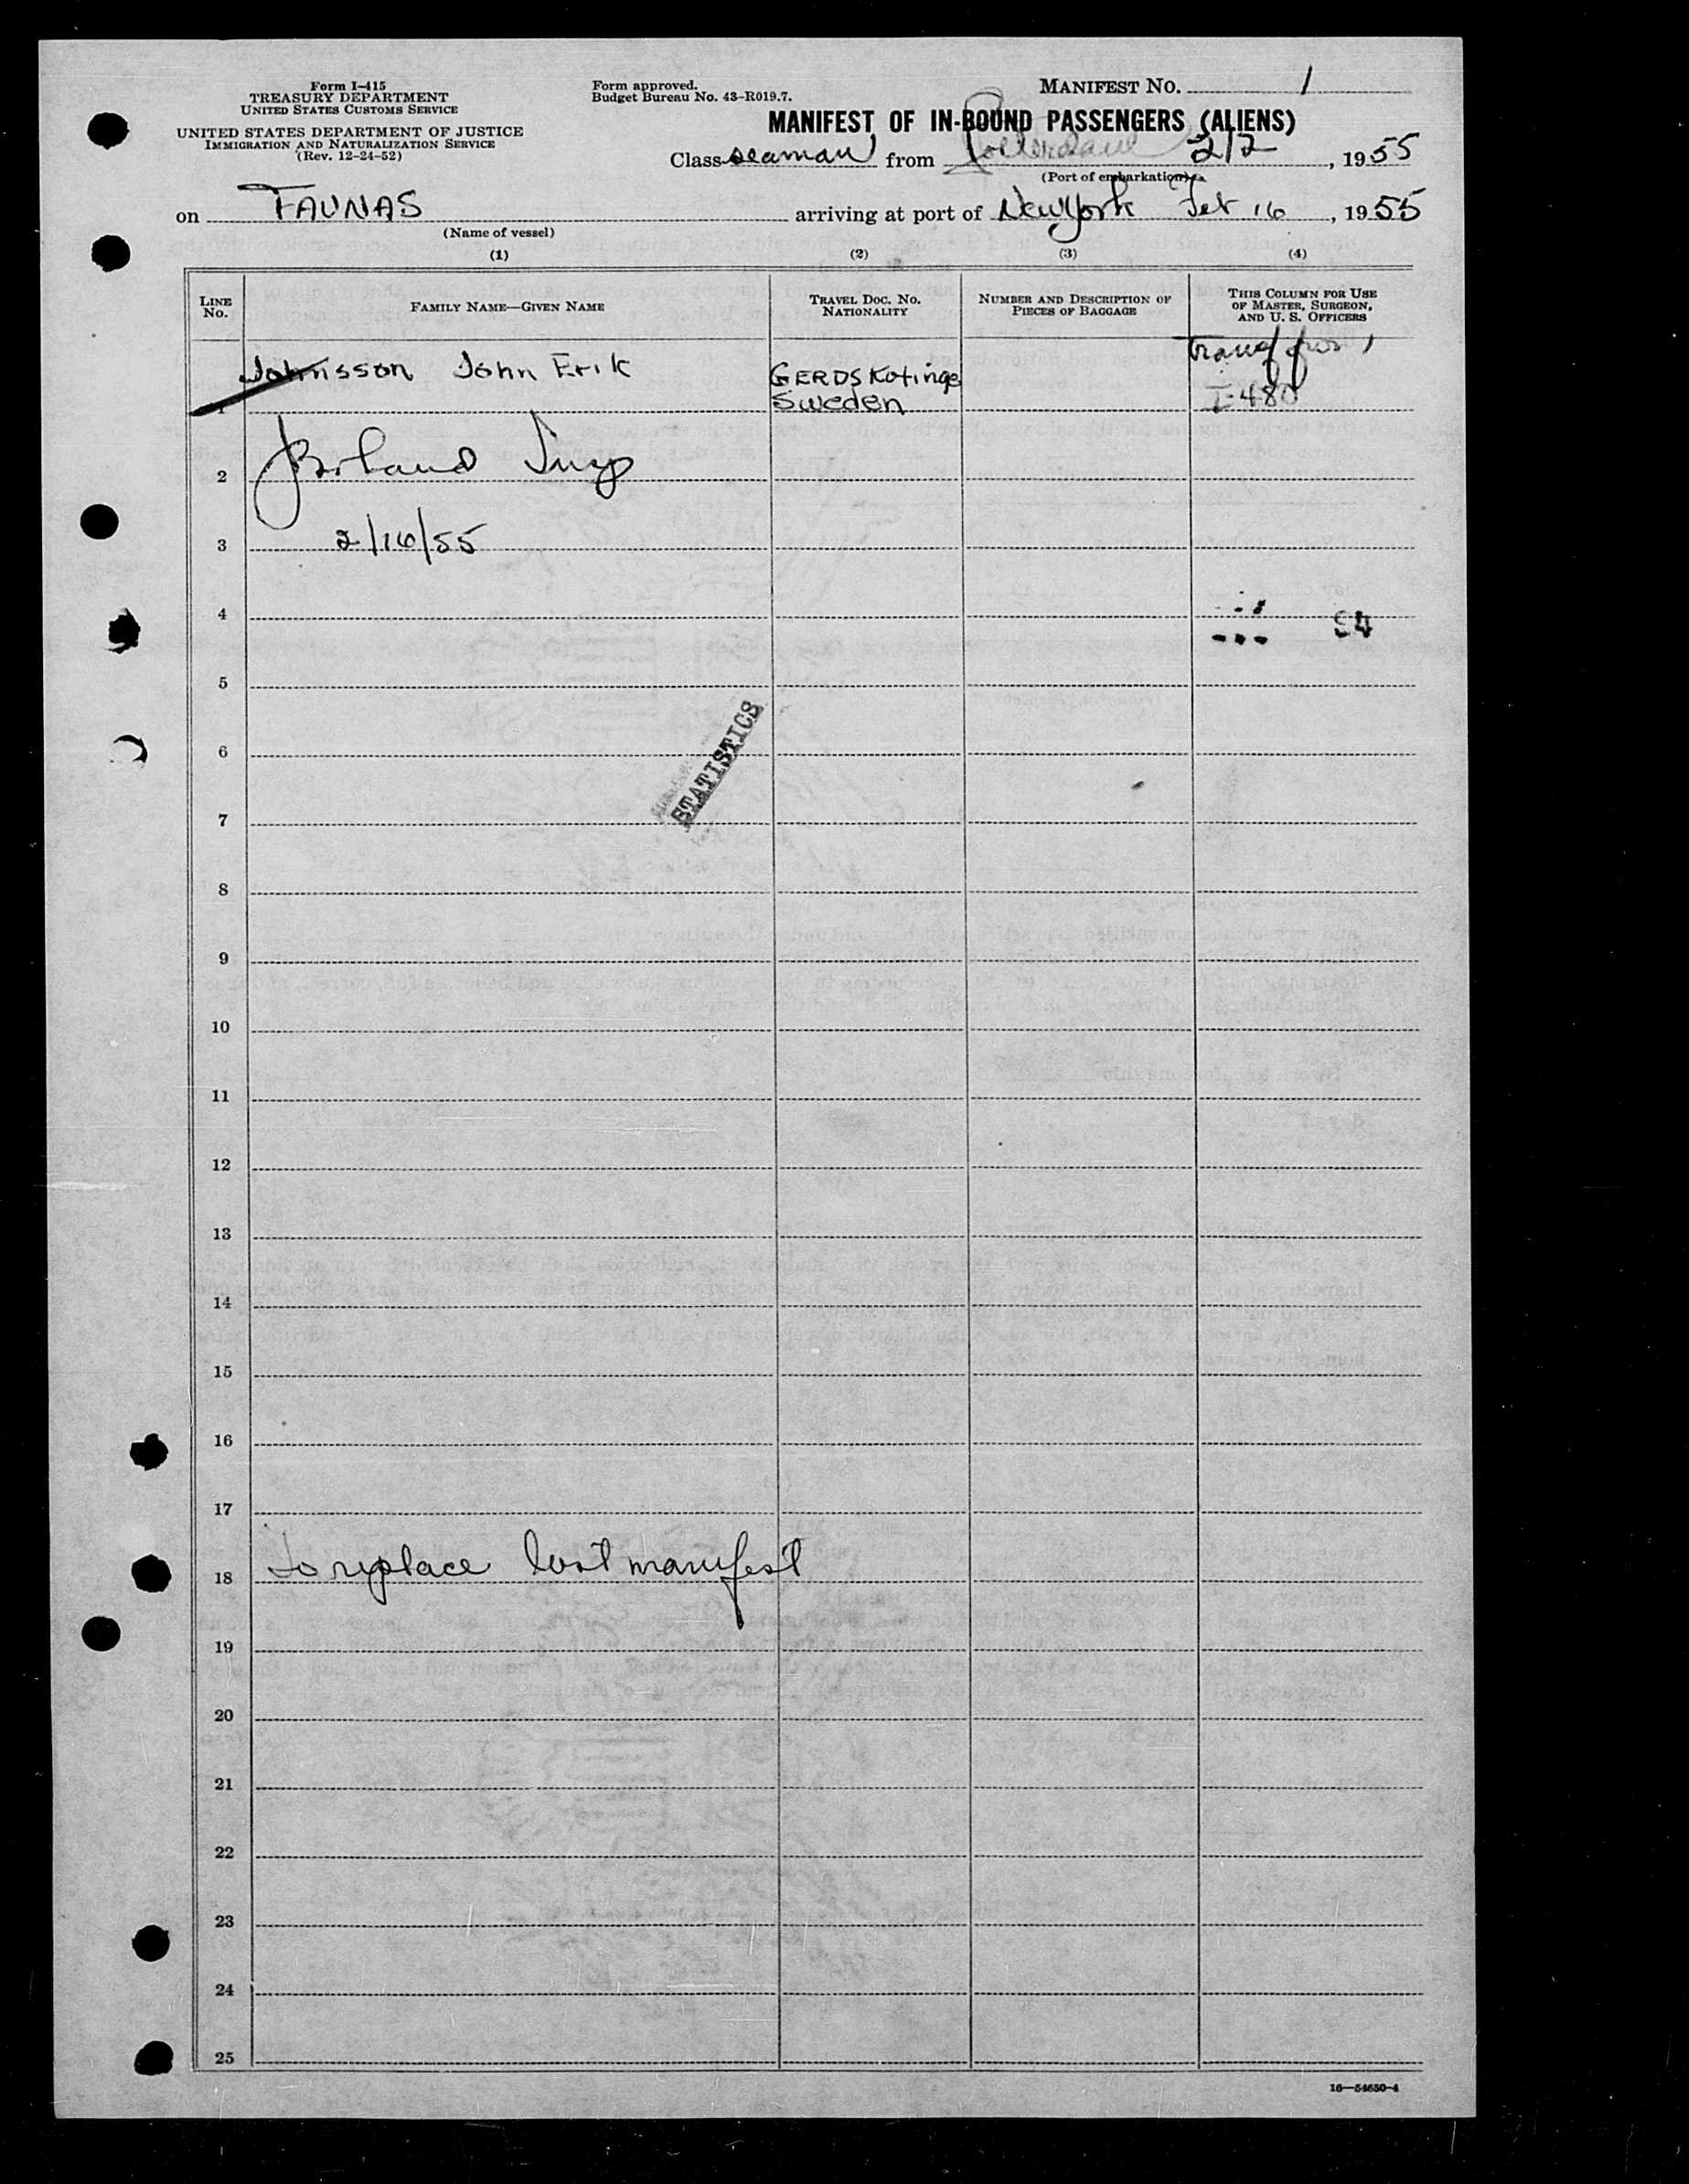 Form I-415
TREASURY DEPARTMENT
UNITED STATES CUSTOMS SERVICE
UNITED STATES DEPARTMENT OF JUSTICE
IMMIGRATION AND NATURALIZATION SERVICE
(Rev. 12-24-52)
Form approved.
Budget Bureau No. 43-R019.7.
MANIFEST NO. 1
MANIFEST OF IN-BOUND PASSENGERS (ALIENS)
Class seaman from Rotterdam 2/2, 1955
(Port of embarkation)
on FAUNAS arriving at port of New York Feb 16, 1955
(Name of vessel)
(1) (2) (3) (4)
LINE NO. FAMILY NAME—GIVEN NAME TRAVEL DOC. NO. NATIONALITY NUMBER AND DESCRIPTION OF PIECES OF BAGGAGE THIS COLUMN FOR USE OF MASTER, SURGEON, AND U. S. OFFICERS
Johnisson John Erik GERDSKotinge
1 Sweden I-480
2 Boland Insp
3 2/16/55
4
5
6
STATISTICS
7
8
9
10
11
12
13
14
15
16
17
18 to replace lost manifest
19
20
21
22
23
24
25
16—54650-4